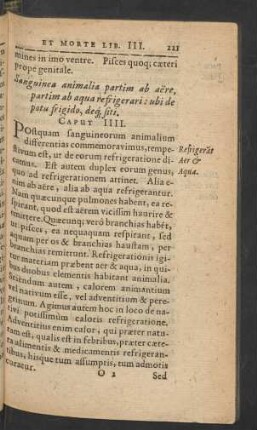 ET MORTE LIB. III. 211
mines in imo ventre. Pisces quoq; cæteri
prope genitale.
Sanguinea animalia partim ab aëre,
partim ab aqua refrigerari: ubi de
potu frigido, deq; siti.
CAPUT IIII.
POstquam sanguineorum animalium
differentias commemoravimus, tempe-
stivum est, ut de eorum refrigeratione di-
camus. Est autem duplex eorum genus,
quod ad refrigerationem attinet. Alia e-
nim ab aëre, alia ab aqua refrigerantur.
Nam quæcunque pulmones habent, ea re-
spirant, quod est aërem vicissim haurire &
emittere. Quæcunq; verò branchias habēt,
ut pisces, ea nequaquam respirant, sed
aquam per os & branchias haustam, per
branchias remittunt. Refrigerationis igi-
tur materiam præbent aer & aqua, in qui-
bus duobus elementis habitant animalia.
Sciendum autem, calorem animantium
vel nativum esse, vel adventitium & pere-
grinum. Agimus autem hoc in loco de na-
tivi potissimùm caloris refrigeratione.
Adventitius enim calor, qui præter natu-
ram est, qualis est in febribus, præter cæte-
ra alimentis & medicamentis refrigeran-
tibus, hisque tum assumptis, tum admotis
curatur.
O 2 Sed
Refrigerāt
Aer &
Aqua.